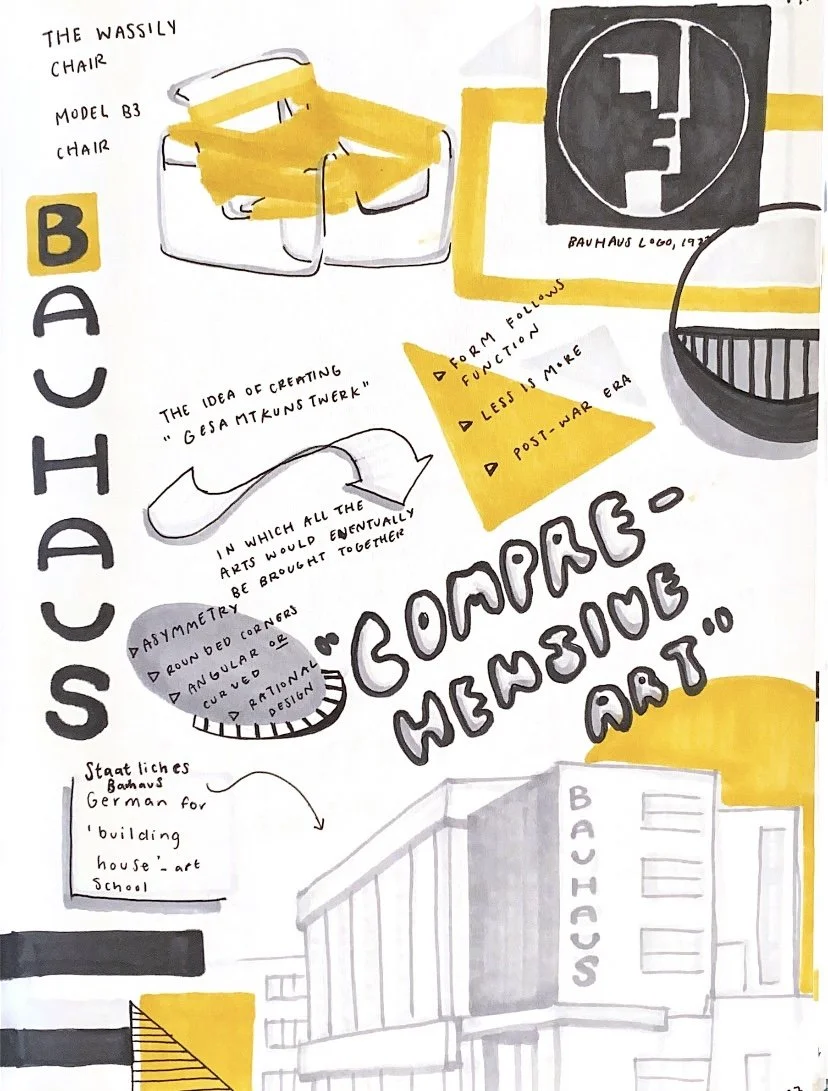 THE WASSILY
CHAIR
MODEL B3
CHAIR
BAUHAUS
BAUHAUS LOGO,
THE IDEA OF CREATING
"GESAMTKUNSTWERK"
IN WHICH ALL THE
ARTS WOULD EVENTUALLY
BE BROUGHT TOGETHER
▷ FORM FOLLOWS
FUNCTION
▷ LESS IS MORE
▷ POST-WAR ERA
"COMPRE-
HENSIVE
ART"
▷ ASYMMETRY
▷ ROUNDED CORNERS
▷ ANGULAR OR
CURVED
▷ RATIONAL
DESIGN
Staatliches
Bauhaus
German for
'building
house'- art
School
BAUHAUS